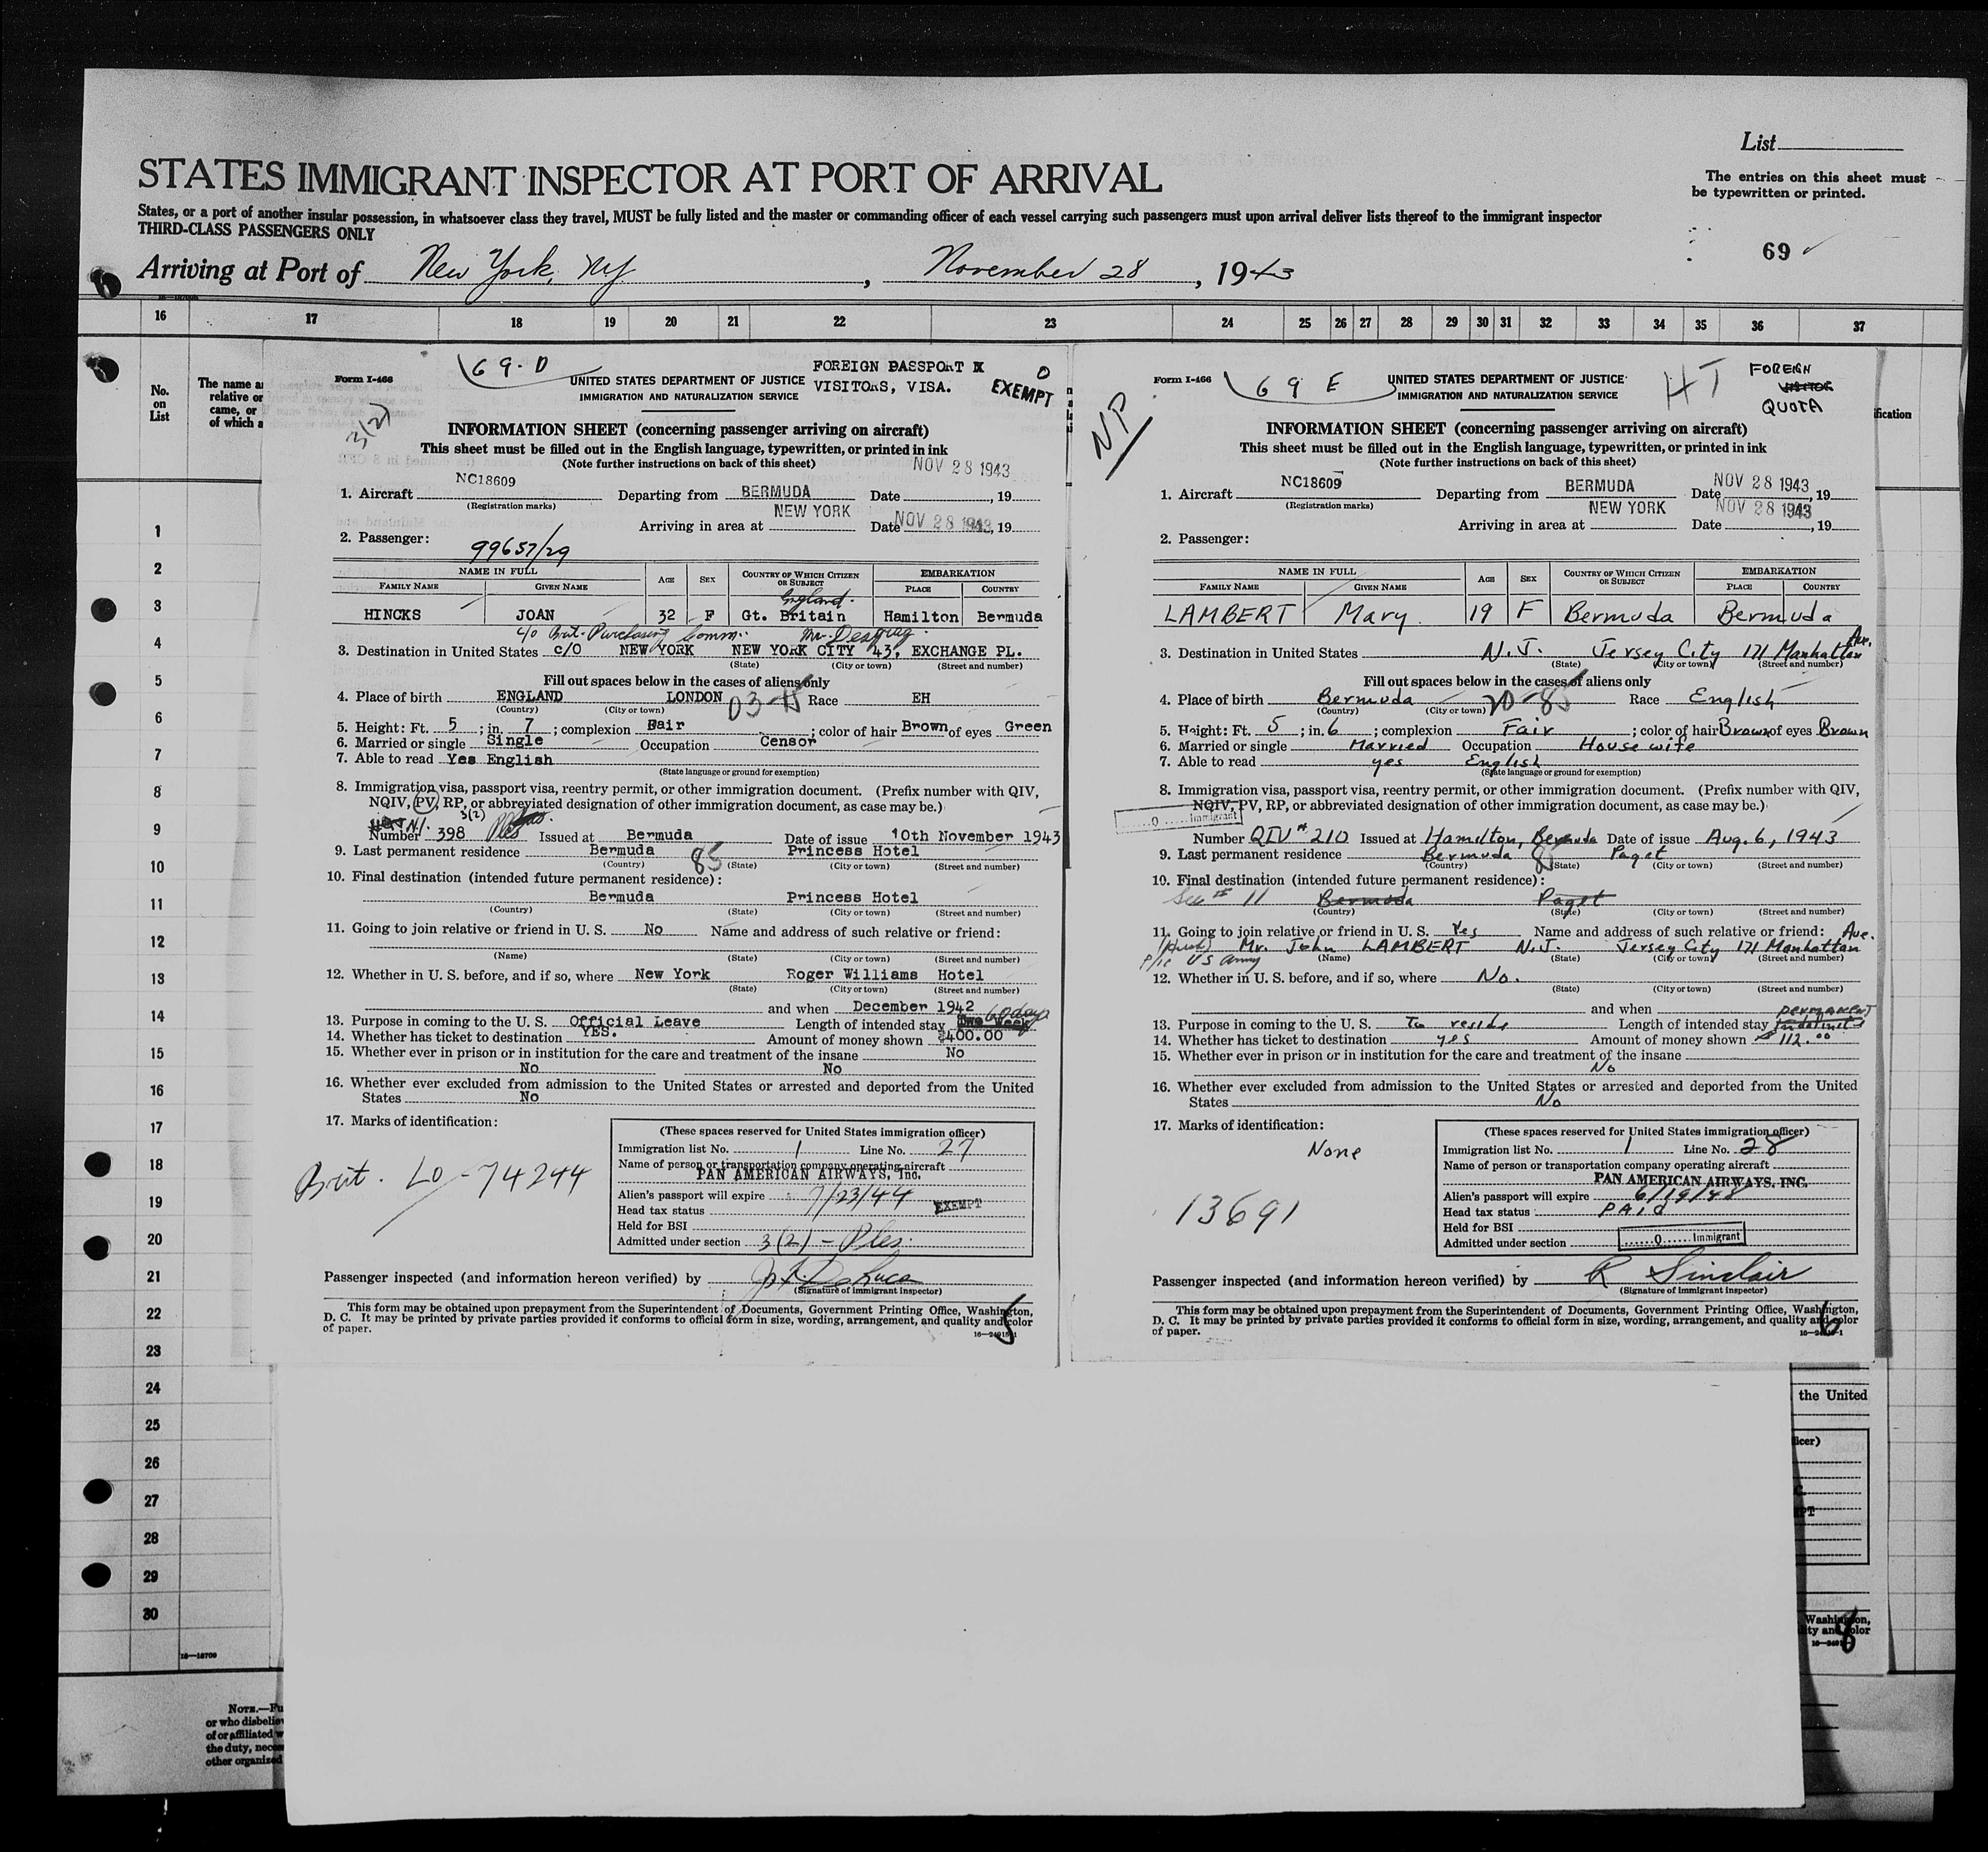 List
STATES IMMIGRANT INSPECTOR AT PORT OF ARRIVAL
The entries on this sheet must
be typewritten or printed.
States, or a port of another insular possession, in whatsoever class they travel, MUST be fully listed and the master or commanding officer of each vessel carrying such passengers must upon arrival deliver lists thereof to the immigrant inspector
THIRD-CLASS PASSENGERS ONLY
69
Arriving at Port of New York, NY, November 28, 1943
16 17 18 19 20 21 22 23 24 25 26 27 28 29 30 31 32 33 34 35 36 37
No.
on
List
The name a
relative or
came, or
of which a
1
2
3
4
5
6
7
8
9
10
11
12
13
14
15
16
17
18
19
20
21
22
23
24
25
26
27
28
29
30
16—18709
NOTE.—Fu
or who disbeliev
of or affiliated w
the duty, neces
other organized
Form I-466
69-D
FOREIGN PASSPORT X
VISITORS, VISA.
0
EXEMPT
3(2)
UNITED STATES DEPARTMENT OF JUSTICE
IMMIGRATION AND NATURALIZATION SERVICE
INFORMATION SHEET (concerning passenger arriving on aircraft)
This sheet must be filled out in the English language, typewritten, or printed in ink
(Note further instructions on back of this sheet)
1. Aircraft NC18609 Departing from BERMUDA Date NOV 28 1943, 19
(Registration marks)
Arriving in area at NEW YORK Date NOV 28 1943, 19
2. Passenger: 99657/29
NAME IN FULL AGE SEX COUNTRY OF WHICH CITIZEN OR SUBJECT EMBARKATION
FAMILY NAME GIVEN NAME PLACE COUNTRY
England.
HINCKS JOAN 32 F Gt. Britain Hamilton Bermuda
c/o Brit. Purchasing Comm.
3. Destination in United States c/O NEW YORK NEW YORK CITY 43, EXCHANGE PL.
(State) (City or town) (Street and number)
Fill out spaces below in the cases of aliens only
4. Place of birth ENGLAND LONDON Race EH
(Country) (City or town)
5. Height: Ft. 5; in. 7; complexion Fair; color of hair Brown of eyes Green
6. Married or single Single Occupation Censor
7. Able to read Yes English
(State language or ground for exemption)
8. Immigration visa, passport visa, reentry permit, or other immigration document. (Prefix number with QIV,
NQIV, PV, RP, or abbreviated designation of other immigration document, as case may be.)
3(2)
Number 398 Issued at Bermuda Date of issue 10th November 1943
9. Last permanent residence Bermuda 85 Princess Hotel
(Country) (State) (City or town) (Street and number)
10. Final destination (intended future permanent residence):
Bermuda Princess Hotel
(Country) (State) (City or town) (Street and number)
11. Going to join relative or friend in U. S. No Name and address of such relative or friend:
(Name) (State) (City or town) (Street and number)
12. Whether in U. S. before, and if so, where New York Roger Williams Hotel
(State) (City or town) (Street and number)
and when December 1942
13. Purpose in coming to the U. S. Official Leave Length of intended stay Two Week 60 days
14. Whether has ticket to destination YES. Amount of money shown $400.00
15. Whether ever in prison or in institution for the care and treatment of the insane No
No No
16. Whether ever excluded from admission to the United States or arrested and deported from the United
States No
17. Marks of identification:
Brit. LO-74244
(These spaces reserved for United States immigration officer)
Immigration list No. 1 Line No. 27
Name of person or transportation company operating aircraft
PAN AMERICAN AIRWAYS, Inc.
Alien's passport will expire 7/23/44
Head tax status EXEMPT
Held for BSI
Admitted under section 3(2) - Ples.
Passenger inspected (and information hereon verified) by
(Signature of immigrant inspector)
This form may be obtained upon prepayment from the Superintendent of Documents, Government Printing Office, Washington,
D. C. It may be printed by private parties provided it conforms to official form in size, wording, arrangement, and quality and color
of paper.
5
NP
Form I-466
69 E
HT
FOREIGN
VISITOR
QUOTA
fication
UNITED STATES DEPARTMENT OF JUSTICE
IMMIGRATION AND NATURALIZATION SERVICE
INFORMATION SHEET (concerning passenger arriving on aircraft)
This sheet must be filled out in the English language, typewritten, or printed in ink
(Note further instructions on back of this sheet)
1. Aircraft NC18609 Departing from BERMUDA Date NOV 28 1943, 19
(Registration marks)
Arriving in area at NEW YORK Date NOV 28 1943, 19
2. Passenger:
NAME IN FULL AGE SEX COUNTRY OF WHICH CITIZEN OR SUBJECT EMBARKATION
FAMILY NAME GIVEN NAME PLACE COUNTRY
LAMBERT Mary 19 F Bermuda Bermuda
3. Destination in United States N.J. Jersey City 171 Manhattan Ave.
(State) (City or town) (Street and number)
Fill out spaces below in the cases of aliens only
4. Place of birth Bermuda Race English
(Country) (City or town)
5. Height: Ft. 5; in. 6; complexion Fair; color of hair Brown of eyes Brown
6. Married or single Married Occupation House wife
7. Able to read yes English
(State language or ground for exemption)
8. Immigration visa, passport visa, reentry permit, or other immigration document. (Prefix number with QIV,
NQIV, PV, RP, or abbreviated designation of other immigration document, as case may be.)
0 Immigrant
Number QIV # 210 Issued at Hamilton, Bermuda Date of issue Aug. 6, 1943
9. Last permanent residence Bermuda 85 Paget
(Country) (State) (City or town) (Street and number)
10. Final destination (intended future permanent residence):
Bermuda Paget
(Country) (State) (City or town) (Street and number)
11. Going to join relative or friend in U. S. Yes Name and address of such relative or friend:
(Husb) Mr. John LAMBERT N.J. Jersey City 171 Manhattan Ave.
Pfc US Army (Name) (State) (City or town) (Street and number)
12. Whether in U. S. before, and if so, where No.
(State) (City or town) (Street and number)
and when
13. Purpose in coming to the U. S. To reside Length of intended stay Indefinite permanent
14. Whether has ticket to destination yes Amount of money shown $112.00
15. Whether ever in prison or in institution for the care and treatment of the insane
No
16. Whether ever excluded from admission to the United States or arrested and deported from the United
States No
17. Marks of identification:
None
13691
(These spaces reserved for United States immigration officer)
Immigration list No. 1 Line No. 28
Name of person or transportation company operating aircraft
PAN AMERICAN AIRWAYS, INC.
Alien's passport will expire 6/19/48
Head tax status PAid
Held for BSI
Admitted under section 0 Immigrant
Passenger inspected (and information hereon verified) by R Sinclair
(Signature of immigrant inspector)
This form may be obtained upon prepayment from the Superintendent of Documents, Government Printing Office, Washington,
D. C. It may be printed by private parties provided it conforms to official form in size, wording, arrangement, and quality and color
of paper.
6
the United
ficer)
Washington,
ity and color
8